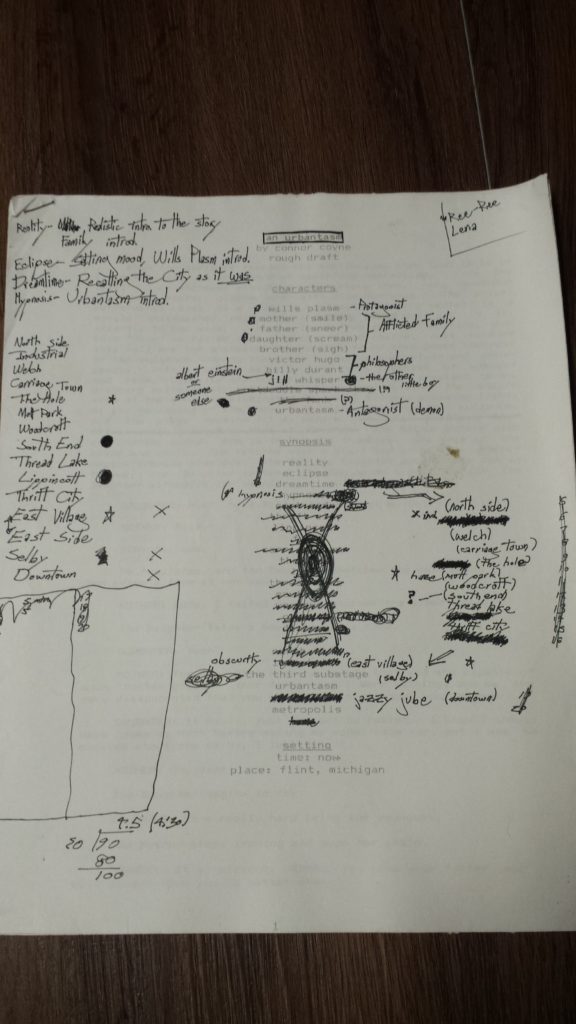 Reality - Realistic intro. to the story
Family introd.
Eclipse - Setting mood, Wills Plasm introd.
Dreamtime - Recalling the City as it was.
Hypnosis - Urbantasm introd.
Ree-Ree
Lena
an urbantasm
by connor coyne
rough draft
characters
wills plasm - Protagonist
mother (smile)
father (sneer)
daughter (scream)
brother (sigh)
Afflicted Family
victor hugo
billy durant
philosophers
albert einstein
or
someone
else
jill whisper - the other
little boy
urbantasm - Antagonist (demon)
North side
Industrial
Welch
Carriage Town
The Hole
Mott Park
Woodcroft
South End
Thread Lake
Lippincott
Thrift City
East Village
East Side
Selby
Downtown
synopsis
reality
eclipse
dreamtime
hypnosis
(north side)
x ind.
(welch)
(carriage town)
(the hole)
home (mott park)
(woodcroft)
? (south end)
thread lake
thrift city
obscurity
(east village)
the third substage (selby)
urbantasm
jazzy jube (downtown)
metropolis
setting
time: now
place: flint, michigan
4.5 (4:30)
20 90
80
100
1